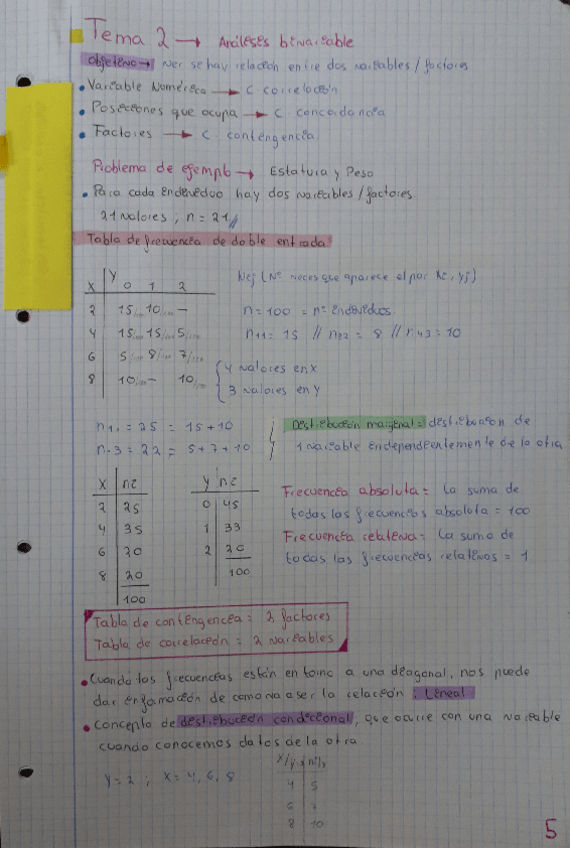 Tema 2 → Análisis bivariable
Objetivo → Ver si hay relación entre dos variables / factores
• Variable Numérica → C. correlación
• Posiciones que ocupa → C. concordancia
• Factores → C. contingencia
Problema de ejemplo → Estatura y Peso
• Para cada individuo hay dos variables / factores.
21 valores ; n = 21 //
Tabla de frecuencia de doble entrada
X Y 0 1 2
2 15 10 -
4 15 15 5
6 5 8 7
8 10 - 10
Nij (Nº veces que aparece el par xi, yj)
n = 100 = nº individuos
n11 = 15 // n32 = 8 // n43 = 10
4 valores en X
3 valores en Y
n1. = 25 = 15 + 10
n.3 = 22 = 5 + 7 + 10
Distribución marginal = distribución de
1 variable independientemente de la otra
X ni
2 25
4 35
6 20
8 20
100
Y ni
0 45
1 33
2 20
100
Frecuencia absoluta = La suma de
todas las frecuencias absoluta = 100
Frecuencia relativa = La suma de
todas las frecuencias relativas = 1
Tabla de contingencia = 2 factores
Tabla de correlación = 2 variables
• Cuando las frecuencias están en torno a una diagonal, nos puede
dar información de como va a ser la relación : Lineal
• Concepto de distribución condicional, que ocurre con una variable
cuando conocemos datos de la otra.
Y = 2 ; X = 4, 6, 8
4 5
6 7
8 10
5